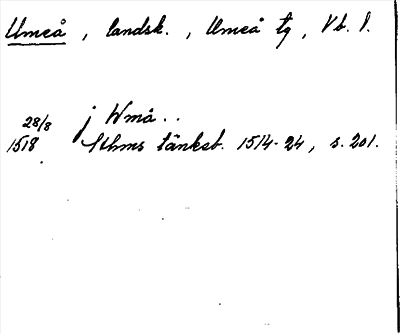 Umeå, landsk., Umeå tg, Vb. l.
28/8 j Wmå..
1518 Sthms tänkeb. 1514-24, s. 201.